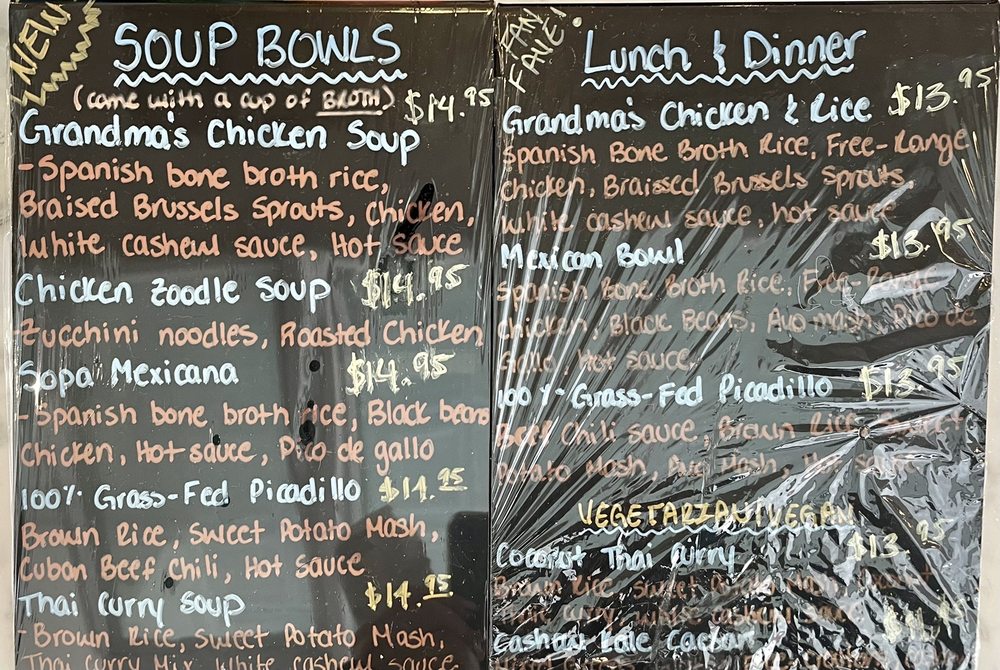 NEW
SOUP BOWLS
(come with a cup of BROTH) $14.95
Grandma's Chicken Soup
-Spanish bone broth rice,
Braised Brussels Sprouts, chicken,
white cashew sauce, Hot sauce
Chicken Zoodle Soup $14.95
Zucchini noodles, Roasted Chicken
Sopa Mexicana $14.95
-Spanish bone broth rice, Black beans
Chicken, Hot sauce, Pico de gallo
100% Grass-Fed Picadillo $14.95
Brown Rice, Sweet Potato Mash,
Cuban Beef Chili, Hot Sauce
Thai Curry Soup $14.95
-Brown Rice, Sweet Potato Mash,
Thai Curry Mix, white cashew sauce
FAN FAVE!
Lunch & Dinner
Grandma's Chicken & Rice $13.95
Spanish Bone Broth Rice, Free-Range
chicken, Braissed Brussels Sprouts,
white cashew sauce, hot sauce
Mexican Bowl $13.95
Spanish Bone Broth Rice, Free-Range
chicken, Black Beans, Avo mash, Pico de
Gallo, Hot sauce
100% Grass-Fed Picadillo $13.95
Beef Chili sauce, Brown Rice, Sweet
Potato Mash, Avo Mash, Hot
VEGETARIAN/VEGAN
Coconut Thai Curry $13.95
Brown Rice, Sweet Potato Mash,
Thai Curry, white cashew sauce
Cashew Kale Caesar